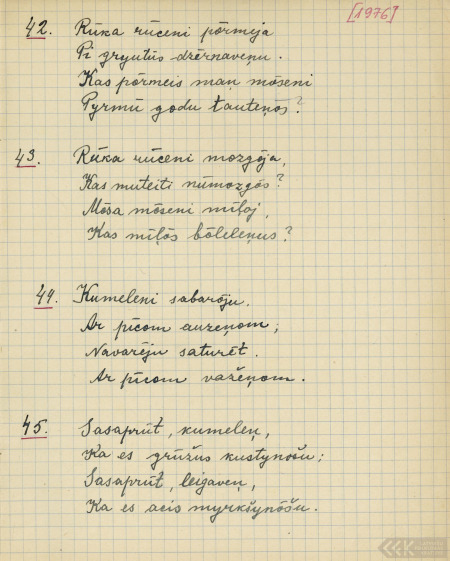 [1976]
42. Rūka rūceni pōrmeja
Pi gryutūs dzērnaveņu.
Kas pōrmeis maņ mōseni
Pyrmū godu tauteņōs?
43. Rūka rūceni mozgōja,
Kas muteiti nūmozgōs?
Mōsa mōseni mīļoj,
Kas mīļōs bōleleņus?
44. Kumeleni sabarōju.
Ar pīcom auzeņom;
Navarēju saturēt.
Ar pīcom važeņom.
45. Sasaprūt, kumeleņ,
Ka es grūžus kustynōšu;
Sasaprūt, leigaveņ,
Ka es acis myrkšynōšu.